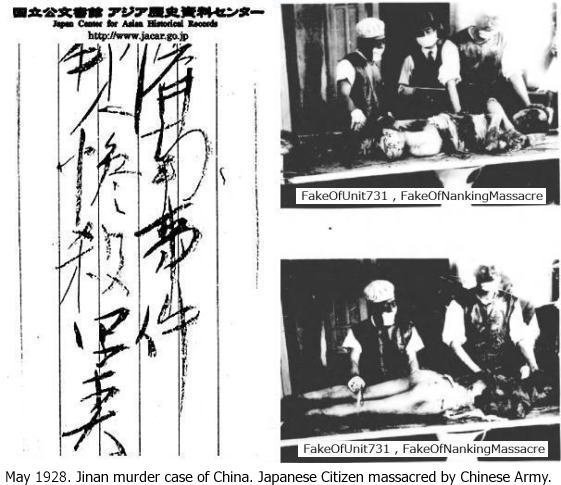 国立公文書館 アジア歴史資料センター
Japan Center for Asian Historical Records
http://www.jacar.go.jp
済南事件
惨殺写真
FakeOfUnit731 , FakeOfNankingMassacre
FakeOfUnit731 , FakeOfNankingMassacre
May 1928. Jinan murder case of China. Japanese Citizen massacred by Chinese Army.